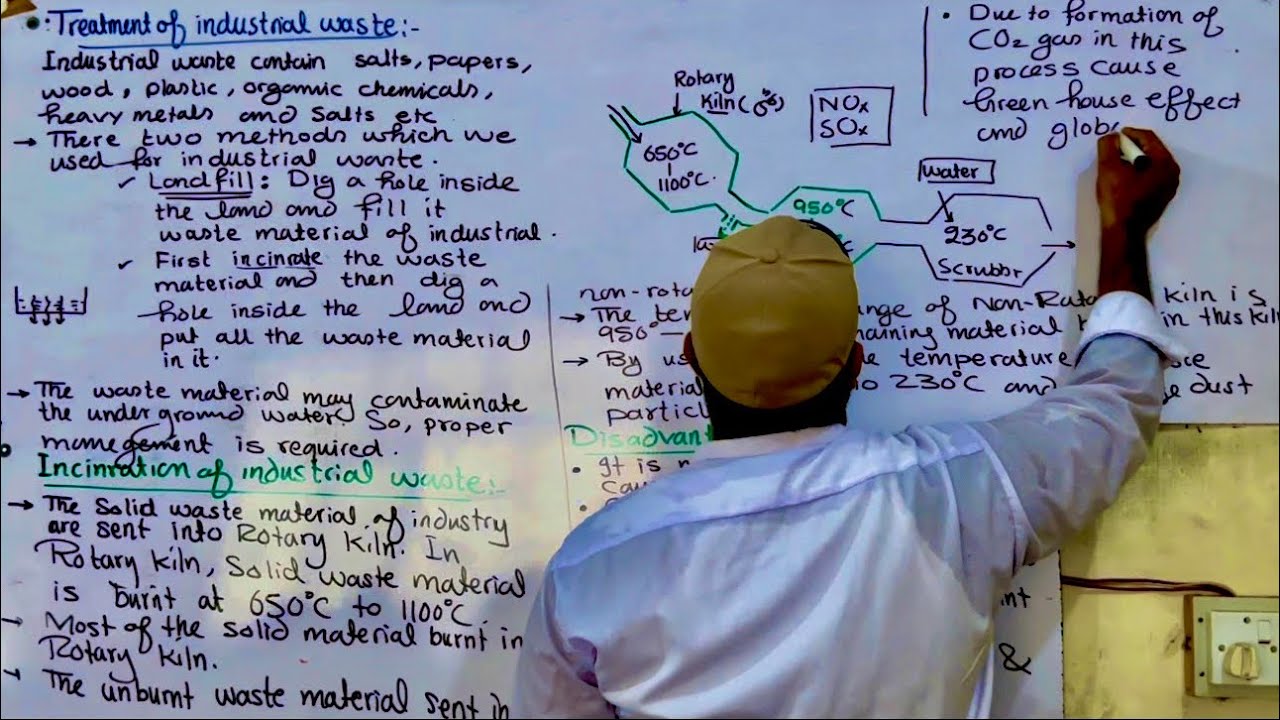 Treatment of industrial waste:-
Industrial waste contain salts, papers,
wood, plastic, organmic chemicals,
heavy metals and salts etc
→ There two methods which we
used for industrial waste.
✓ Landfill: Dig a hole inside
the land and fill it
waste material of industrial.
✓ First incinrate the waste
material and then dig a
hole inside the land and
put all the waste material
in it.
→ The waste material may contaminate
the underground water. So, proper
manegement is required.
Incinration of industrial waste:-
→ The Solid waste material of industry
are sent into Rotary Kiln. In
Rotary Kiln, Solid waste material
is burnt at 650°C to 1100°C.
→ Most of the solid material burnt in
Rotary Kiln.
→ The unburnt waste material sent in
Rotary
Kiln
650°C
1100°C.
NOx
SOx
950°C
water
230°C
Scrubbr
non-rota
→ The te ange of Non-Rota Kiln is
950°— aining material in this kil
→ By us temperature
material to 230°C and dust
particl
Disadvant
• It is n
cau
• Due to formation of
CO₂ gas in this
process cause
Green house effect
and glob
nt
&